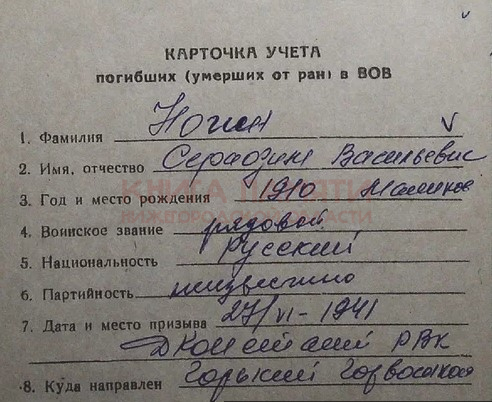 КАРТОЧКА УЧЕТА
погибших (умерших от ран) в ВОВ
1. Фамилия Ногин
2. Имя, отчество Серафим Васильевич
КНИГА ПАМЯТИ
3. Год и место рождения 1910
НИЖЕГОРОДСКОЙ ОБЛАСТИ
4. Воинское звание рядовой
5. Национальность Русский
6. Партийность неизвестно
7. Дата и место призыва 27/VI-1941
РВК
8. Куда направлен Горький